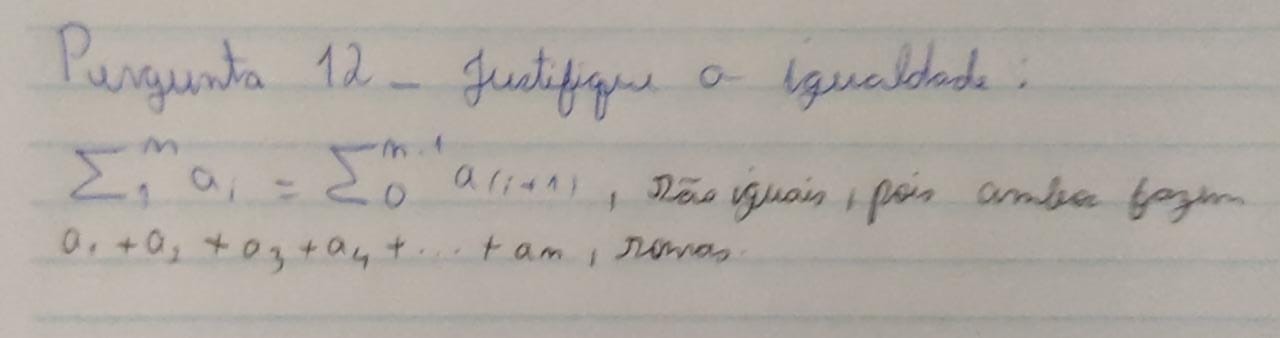 Pergunta 12 - Justifique a igualdade:
∑₁ⁿ aᵢ = ∑₀ⁿ⁻¹ a₍ᵢ₊₁₎, são iguais, pois ambas fazem
a₁ + a₂ + a₃ + a₄ + ... + an, somas.